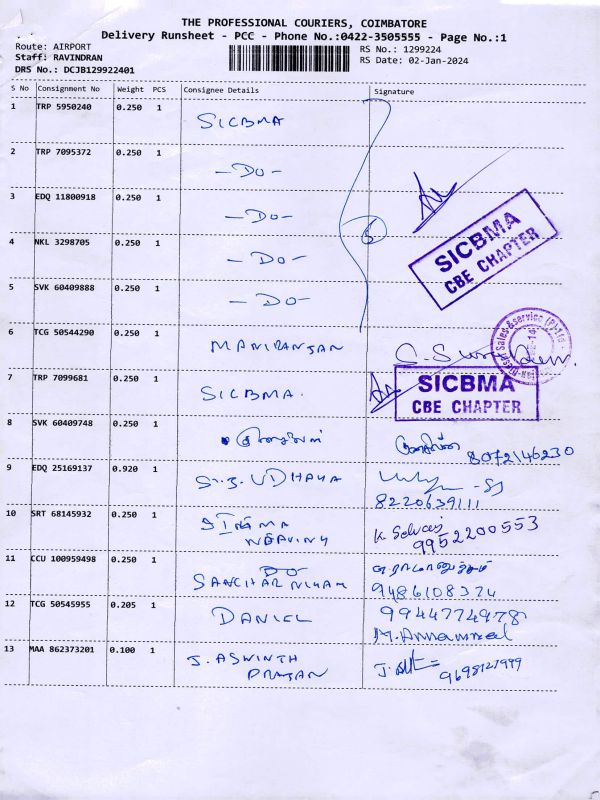 THE PROFESSIONAL COURIERS, COIMBATORE
Delivery Runsheet - PCC - Phone No.:0422-3505555 - Page No.:1
Route: AIRPORT
Staff: RAVINDRAN
DRS No.: DCJB129922401
RS No.: 1299224
RS Date: 02-Jan-2024
S No Consignment No Weight PCS Consignee Details Signature
1 TRP 5950240 0.250 1 SICBMA
2 TRP 7095372 0.250 1 -DO-
3 EDQ 11800918 0.250 1 -DO-
4 NKL 3298705 0.250 1 -DO-
5 SVK 60409888 0.250 1 -DO-
SICBMA
CBE CHAPTER
6 TCG 50544290 0.250 1 MANIRANJAN
7 TRP 7099681 0.250 1 SICBMA.
SICBMA
CBE CHAPTER
8 SVK 60409748 0.250 1
8072146230
9 EDQ 25169137 0.920 1 UDHAYA
8220639111
10 SRT 68145932 0.250 1 K. Selvaraj
9952200553
11 CCU 100959498 0.250 1 DO
SANCHAR NIGAM 9486108374
12 TCG 50545955 0.205 1 DANIEL 9944774978
M. Annammal
13 MAA 862373201 0.100 1 J. ASWINTH
9698127999